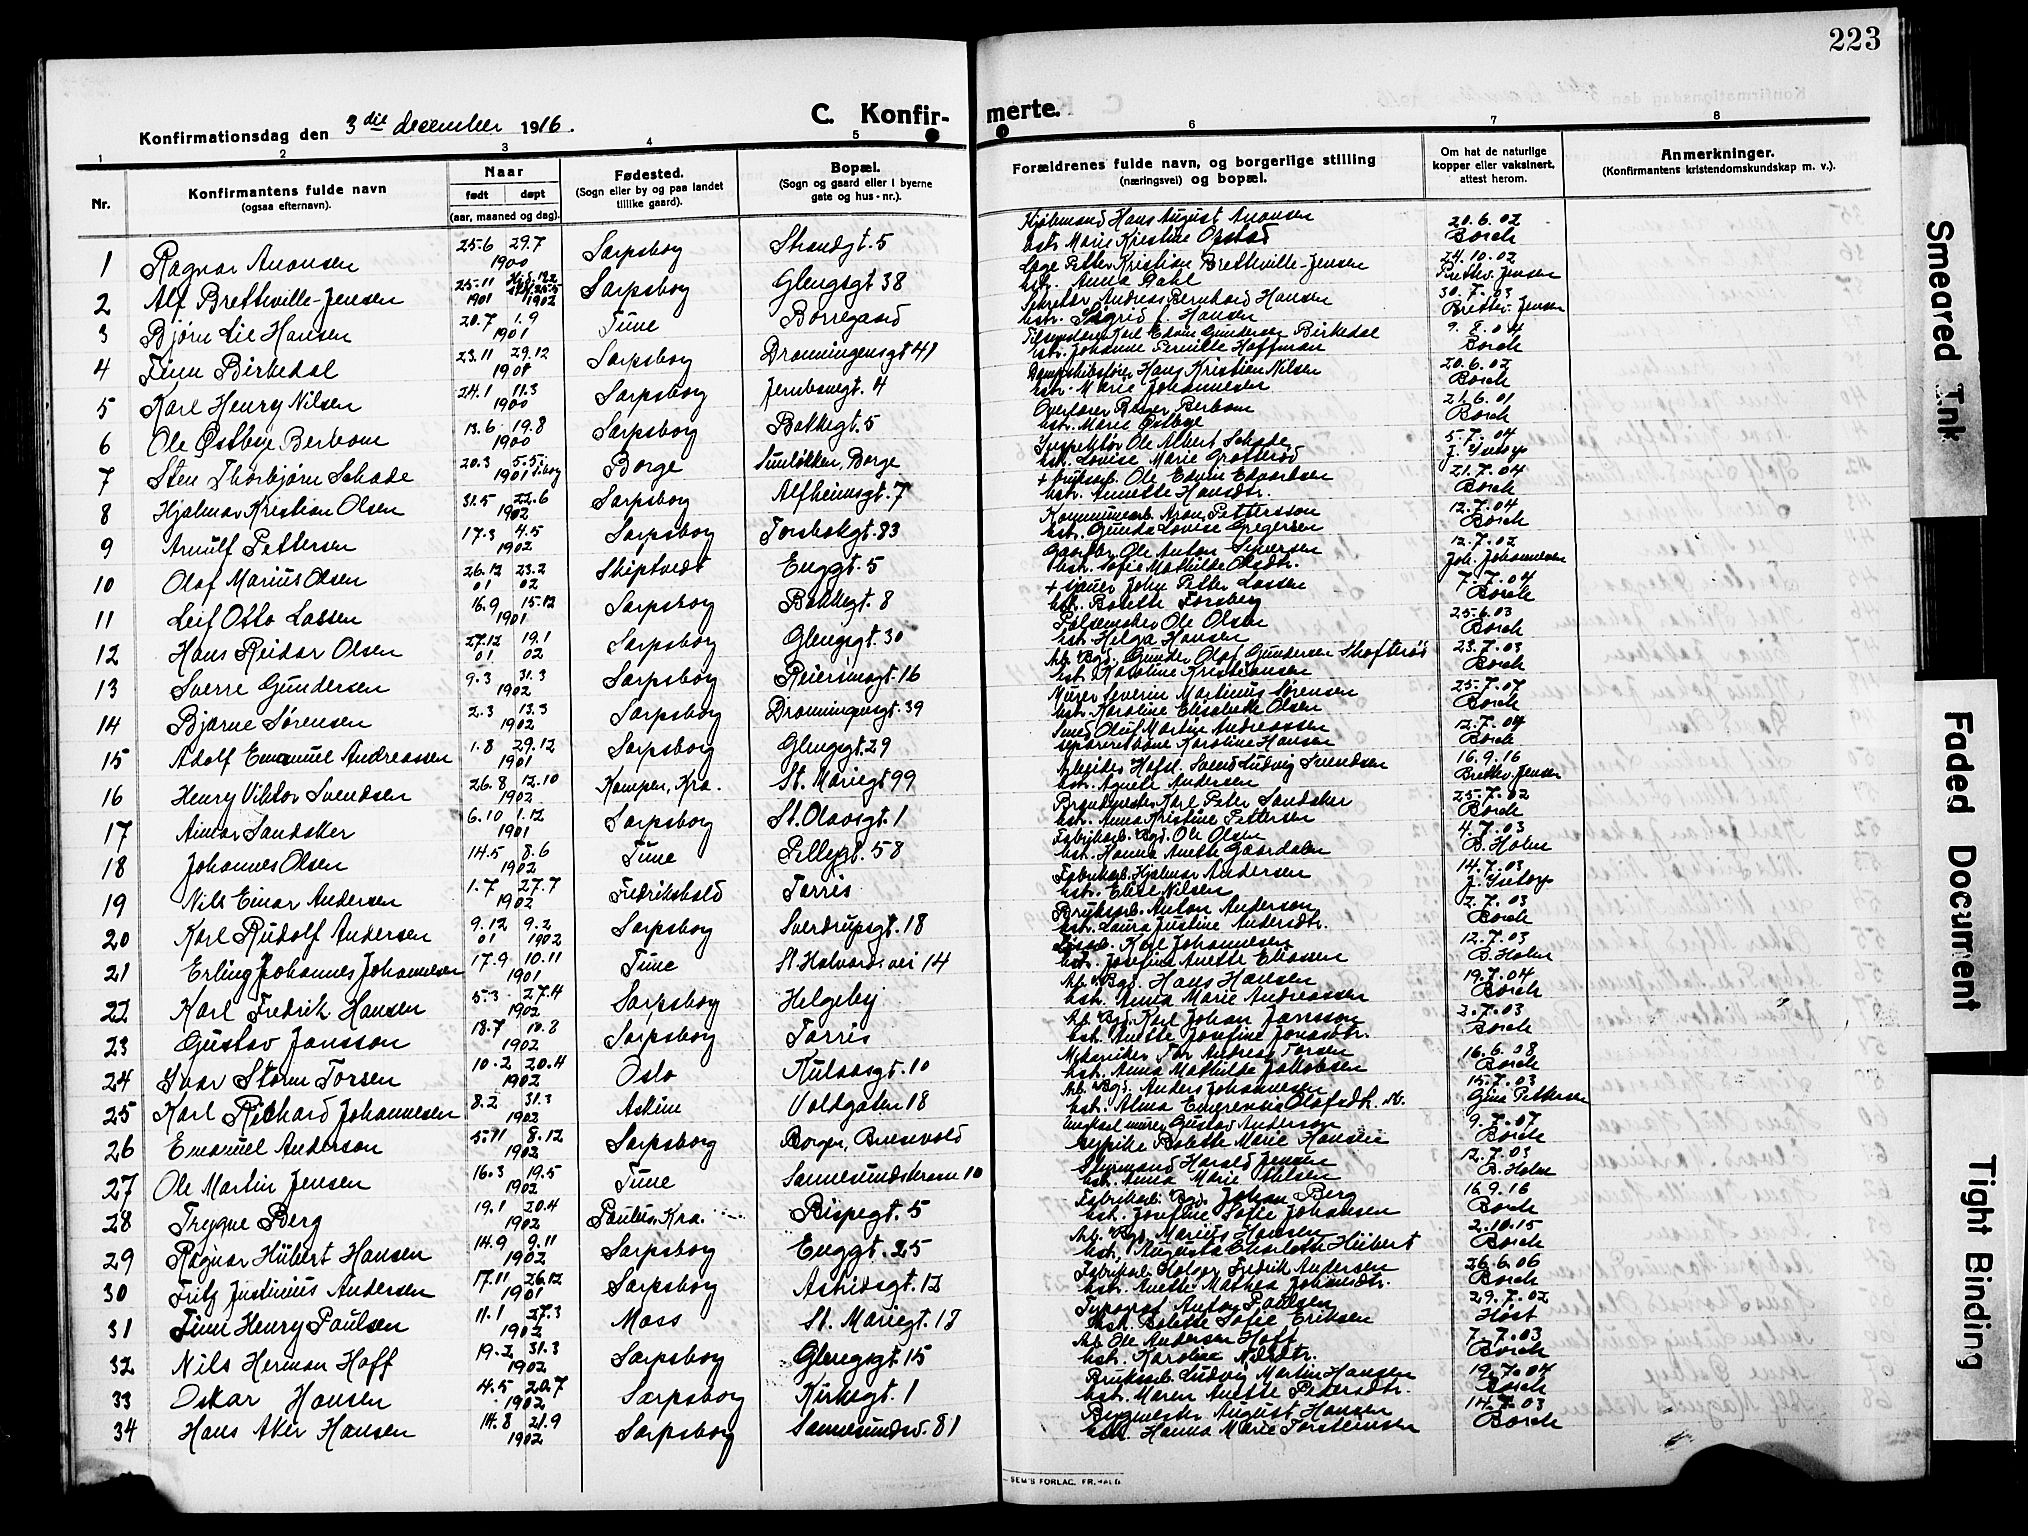 223
Konfirmationsdag den 3die december 1916.
C. Konfir-merte.
1 2 3 4 5 6 7 8
Nr.
Konfirmantens fulde navn
(ogsaa efternavn).
Naar
født døpt
(aar, maaned og dag).
Fødested.
(Sogn eller by og paa landet
tillike gaard).
Bopæl.
(Sogn og gaard eller i byerne
gate og hus-nr.).
Forældrenes fulde navn, og borgerlige stilling
(næringsvei) og bopæl.
Om hat de naturlige
kopper eller vaksinert,
attest herom.
Anmerkninger.
(Konfirmantens kristendomskundskap m. v.).
1 Ragnar Anonsen 25.6 29.7 1900 Sarpsborg Strandgt. 5 Hans August Anonsen 20.6.02
hstr. Marie Kristine Opstad Borch
2 Alf Brettville-Jensen 25.11 1901 1902 Sarpsborg Glengsgt 38 Petter Kristian Brettville-Jensen 24.10.02
hstr. Anna Dahl Brettv. Jensen
3 Bjørn Lie Hansen 20.7 1.9 1901 Tune Borregaard Sekretær Andreas Bernhard Hansen 30.7.03
hstr. Sigrid Hansen Brettv. Jensen
4 Finn Birkedal 23.11 29.12 1901 Sarpsborg Dronningensgt 41 Karl Edvin Gundersen Birkedal 9.8.04
hstr. Johanne Pernille Hoffman Borch
5 Karl Henry Nilsen 24.1 11.3 1900 Sarpsborg Jernbanegt. 4 Hans Kristian Nilsen 20.6.02
hstr. Marie Johannesen Borch
6 Ole Østbye Berbom 13.6 19.8 1900 Sarpsborg Bakkegt. 5 Overlærer Berger Berbom 21.6.01
hstr. Marie Østbye Borch
7 Sten Thorbjørn Schade 20.3 5.5 1901 Borge Sunløkken, Borge Inspektør Ole Albert Schade 5.7.04
hstr. Lovise Marie Grotterød
8 Hjalmar Kristian Olsen 31.5 22.6 1902 Sarpsborg Alfheimsgt. 7 + Bruksarb. Ole Edvin Edvardsen 21.7.04
hstr. Annette Hansdtr. Borch
9 Arnulf Pettersen 17.3 4.5 1902 Sarpsborg Torsbekgt. 83 Kommunearb. Aron Pettersson 12.7.04
hstr. Gunda Lovise Gregersen Borch
10 Olaf Marius Olsen 26.12 01 23.2 02 Skiptvedt Enggt. 5 Gaardbr. Ole Anton Syversen 12.7.02
hstr. Sofie Mathilde Olsdtr. Joh. Johannesen
11 Leif Otto Lassen 16.9 15.12 1901 Sarpsborg Bakkegt. 8 + John Petter Lassen 7.7.04
hstr. Borette Forsberg Borch
12 Hans Reidar Olsen 27.12 01 19.1 02 Sarpsborg Glengsgt. 30 Pølsemaker Ole Olsen 25.6.03
hstr. Helga Hansen Borch
13 Sverre Gundersen 9.3 31.3 1902 Sarpsborg Reiersensgt. 16 Arb. Bgd. Gunder Olaf Gundersen Skofterød 23.7.03
hstr. Karoline Kristiansen Borch
14 Bjarne Sørensen 2.3 13.3 1902 Sarpsborg Dronningensgt. 39 Murer Severin Martinus Sørensen 25.7.07
hstr. Karoline Elisabeth Olsen Borch
15 Adolf Emanuel Andreassen 1.8 29.12 1901 Sarpsborg Glengsgt. 29 Smed Oluf Martin Andreassen 12.7.04
separert hstr. Karoline Hansen Borch
16 Henry Viktor Svendsen 26.8 12.10 1902 Kampen, Kra. St. Mariegt 99 Svend Ludvig Svendsen 16.9.16
hstr. Agnete Andersen Brettv. Jensen
17 Aimar Sandaker 6.10 1.12 1901 Sarpsborg St. Olavsgt. 1 Brandmester Karl Peter Sandaker 25.7.02
hstr. Anna Kristine Pettersen Borch
18 Johannes Olsen 14.5 8.6 1902 Tune Pellygt. 58 Fabrikarb. Bgd. Ole Olsen 4.7.03
hstr. Hanna Anette Gaardalen B. Holm
19 Nils Einar Andersen 1.7 27.7 1902 Fredrikshald Torris Fabrikarb. Hjalmar Andersen 14.7.03
hstr. Elise Nilsen
20 Karl Rudolf Andersen 9.12 01 9.2 1902 Sarpsborg Sverdrupsgt. 18 Bruksarb. Anton Anderson 2.7.03
hstr. Laura Justine Andersdtr. Borch
21 Erling Johannes Johannesen 17.9 10.11 1901 Tune St. Halvards vei 14 Karl Johannesen 12.7.03
hstr. Josefine Anette Eliassen B. Holm
22 Karl Fredrik Hansen 5.3 27.4 1902 Sarpsborg Helgeby Arb. Bgd. Hans Hansen 19.7.04
hstr. Anna Marie Andreassen Borch
23 Gustav Jansson 18.7 10.8 1902 Sarpsborg Torris Arb. Bgd. Karl Johan Jansson 2.7.03
hstr. Anette Josefine Jonasdtr. Borch
24 Ivar Storm Torsen 10.2 20.4 1902 Oslo Kulaasgt. 10 Mekaniker Tor Andreas Torsen 16.6.08
hstr. Anna Mathilde Jakobsen Borch
25 Karl Richard Johannesen 8.2 31.3 1902 Askim Voldgaten 18 Arb. Bgd. Anders Johannesen 15.7.03
hstr. Alma Emerensia Olafsdtr. Gina Pettersen
26 Emanuel Anderson 5.11 8.12 1902 Sarpsborg Borgen, Brusevold Ungkarl murer Gustav Anderson 9.7.07
og pike Bolette Marie Hansen Borch
27 Ole Martin Jensen 16.3 19.5 1902 Tune Sannesundskaren 10 Styrmand Harald Jensen 12.7.03
hstr. Anna Marie B. Holm
28 Trygve Berg 19.1 20.4 1902 Paulus, Kra. Bispegt. 5 Fabrikarb. Bgd. Johan Berg 16.9.16
hstr. Josefine Sofie Johansen Borch
29 Ragnar Hübert Hansen 14.9 9.11 1902 Sarpsborg Enggt. 25 Arb. Bgd. Marius Hansen 2.10.15
hstr. Augusta Charlotte Hübert Borch
30 Fritz Justinius Andersen 17.11 26.12 1901 Sarpsborg Astridsgt. 12 Fabrikarb. Holger Fredrik Andersen 26.6.06
hstr. Anette Mathea Johansdtr. Borch
31 Finn Henry Paulsen 11.1 27.3 1902 Moss St. Mariegt. 13 Typograf Anton Paulsen 29.7.02
hstr. Bolette Sofie Eriksen Høst
32 Nils Herman Hoff 19.2 31.3 1902 Sarpsborg Glengsgt. 15 Arb. Ole Andersen Hoff 7.7.03
hstr. Karoline Nilsdtr. Borch
33 Oskar Hansen 4.5 20.7 1902 Sarpsborg Kirkegt. 1 Bruksarb. Ludvig Martin Hansen 19.7.04
hstr. Maren Anette Pedersdtr. Borch
34 Hans Aker Hansen 14.8 21.9 1902 Sarpsborg Sannesundsv. 81 August Hansen 14.7.03
hstr. Hanna Marie Torsteinsen Borch
SEM'S FORLAG, FR.HALD.
Smeared Ink
Faded Document
Tight Binding